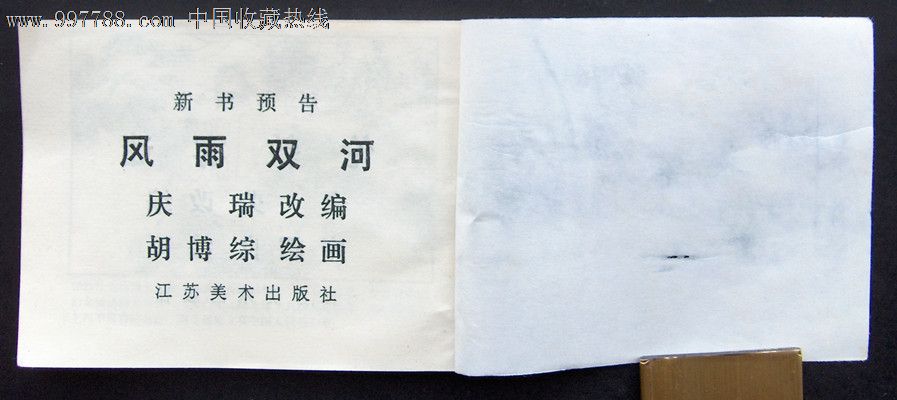 www.997788.com 中国收藏热线
新书预告
风雨双河
庆 瑞改编
胡博综绘画
江苏美术出版社